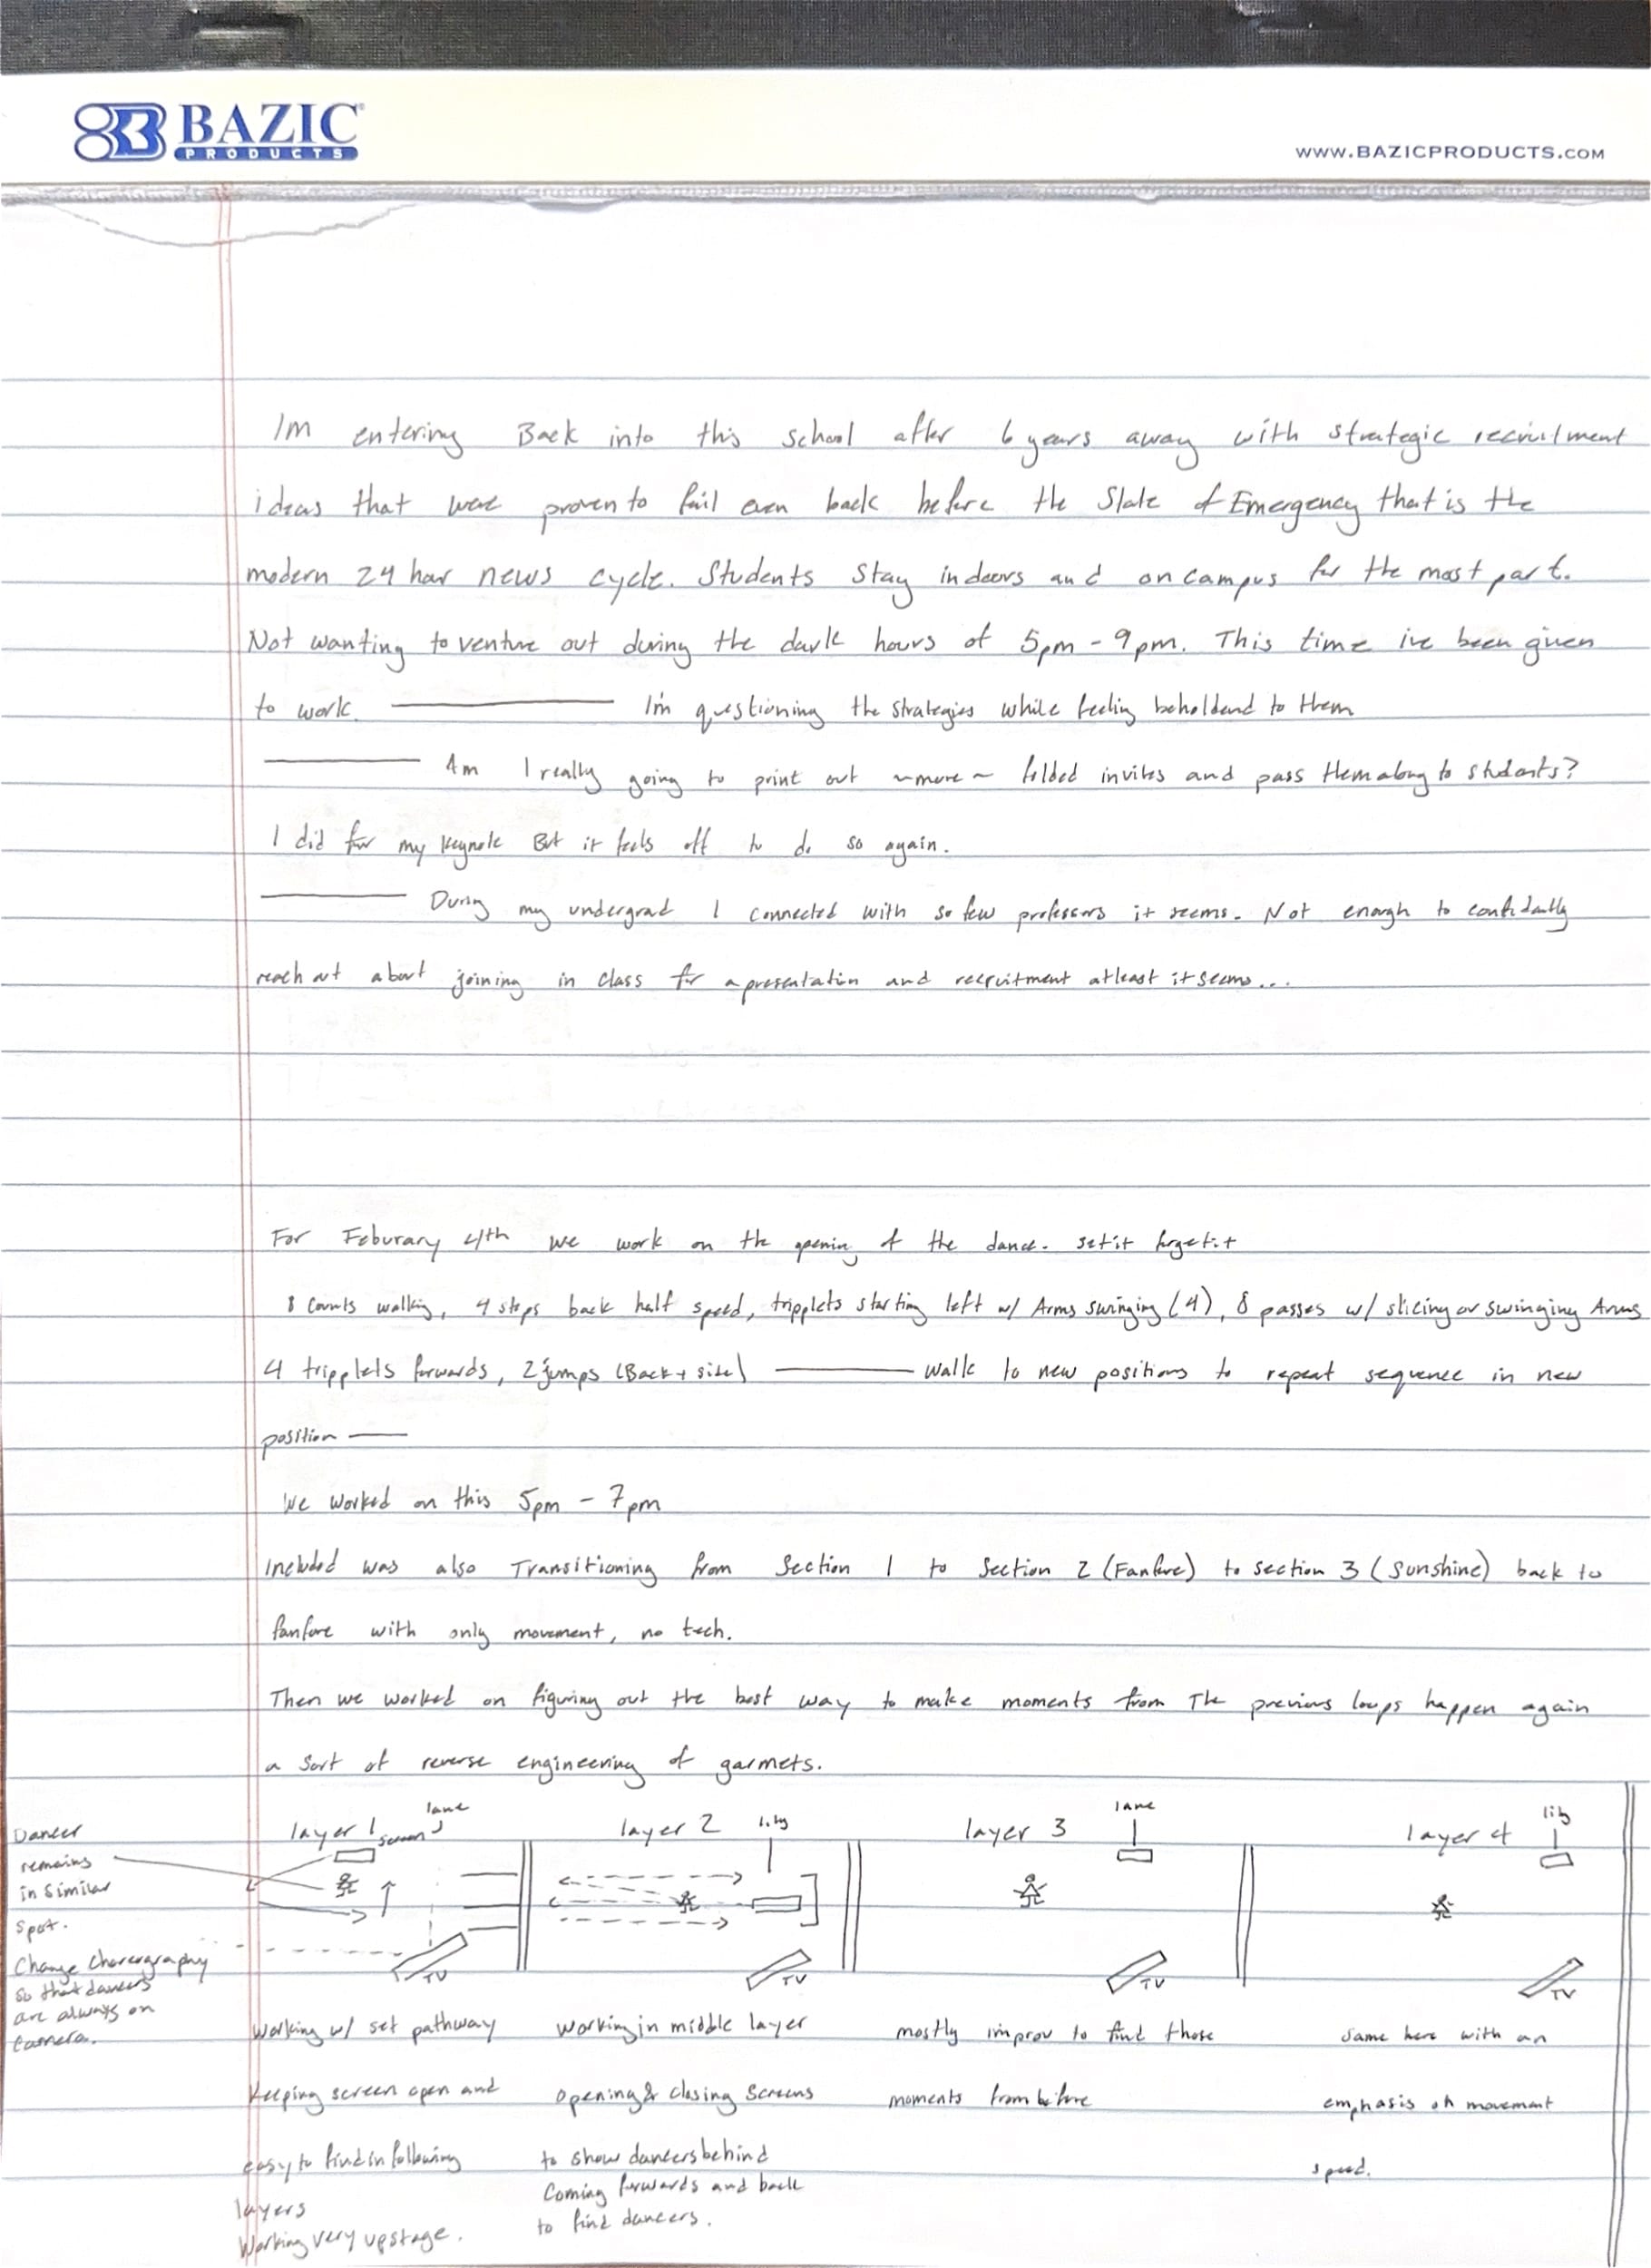 BAZIC
PRODUCTS
WWW.BAZICPRODUCTS.COM
Im entering Back into this school after 6 years away with strategic recruitment
ideas that were proven to fail even back before the State of Emergency that is the
modern 24 hour news cycle. Students Stay indoors and on campus for the most part.
Not wanting to venture out during the dark hours of 5pm - 9pm. This time ive been given
to work. ——— I'm questioning the strategies while feeling beholdend to them
——— Am I really going to print out ~more~ folded invites and pass them along to students?
I did for my keynote But it feels off to do so again.
——— During my undergrad I connected with so few professors it seems. Not enough to confidantly
reach out about joining in class for a presentation and recruitment atleast it seems...
For Feburary 4th we work on the opening of the dance. set it forget it
8 Counts walking, 4 steps back half speed, tripplets starting left w/ Arms swinging (4), 8 passes w/ slicing or swinging Arms
4 tripplets forwards, 2 jumps (Back + side) ——— walk to new positions to repeat sequence in new
position ——
We worked on this 5pm - 7pm
Included was also Transitioning from Section 1 to Section 2 (Fanfare) to section 3 (Sunshine) back to
fanfare with only movement, no tech.
Then we worked on figuring out the best way to make moments from The previous loops happen again
a sort of reverse engineering of garmets.
Dancer
remains
in Similar
spot.
Change Choreography
so that dancers
are always on
Camera.
layer 1
lane
screen
TV
Working w/ set pathway
Keeping screen open and
easy to find in following
layers
Working very upstage.
layer 2
lily
TV
Working in middle layer
Opening & Closing Screens
to show dancers behind
Coming forwards and back
to find dancers.
layer 3
lane
TV
mostly improv to find those
moments from before
layer 4
lily
TV
same here with an
emphasis on movement
speed.